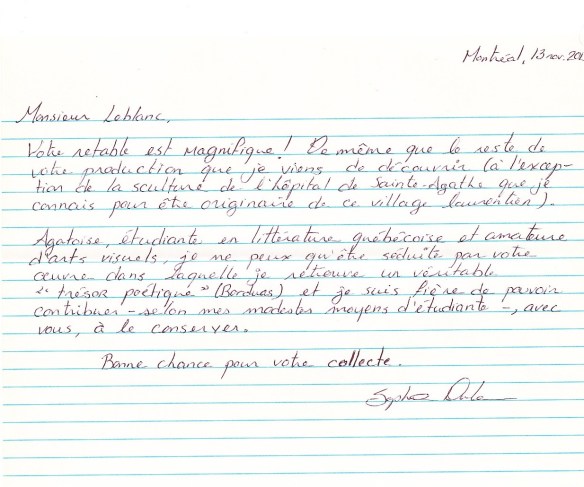 Montréal, 13 nov. 201
Monsieur Leblanc,
Votre retable est magnifique! De même que le reste de
votre production que je viens de découvrir (à l'excep-
tion de la sculture de l'hôpital de Sainte-Agathe que je
connais pour être originaire de ce village laurentien).
Agatoise, étudiante en littérature québécoise et amateure
d'arts visuels, je ne peux qu'être séduite par votre
œuvre dans laquelle je retrouve un véritable
"trésor poétique" (Borduas) et je suis fière de pouvoir
contribuer - selon mes modestes moyens d'étudiante -, avec
vous, à le conserver.
Bonne chance pour votre collecte.